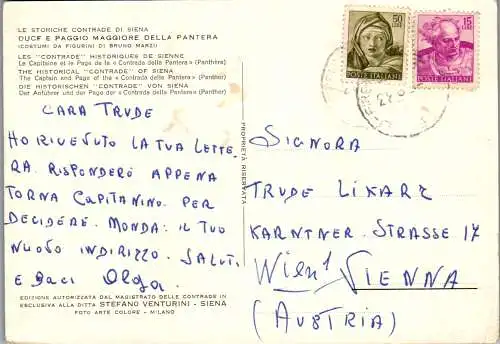 LE STORICHE CONTRADE DI SIENA
DUCE E PAGGIO MAGGIORE DELLA PANTERA
(COSTUMI DA FIGURINI DI BRUNO MARZI)
LES "CONTRADE" HISTORIQUES DE SIENNE
Le Capitaine et le Page de la « Contrada della Pantera» (Panthère)
THE HISTORICAL "CONTRADE" OF SIENA
The Captain and the Page of the « Contrada della Pantera» (Panther)
DIE HISTORISCHEN "CONTRADE" VON SIENA
Der Anführer und der Page der « Contrada della Pantera» (Panther)
CARA TRUDE
HO RIVEVUTO LA TUA LETTE-
RA. RISPONDERÒ APPENA
TORNA CAPITANINO. PER
DECIDERE. MONDA: IL TUO
NUOVO INDIRIZZO. SALUTI
E Baci Olga.
EDIZIONE AUTORIZZATA DAL MAGISTRATO DELLE CONTRADE IN
ESCLUSIVA ALLA DITTA STEFANO VENTURINI - SIENA
FOTO ARTE COLORE - MILANO
PROPRIETÀ RISERVATA
50
LIRE
POSTE ITALIANE
15
LIRE
POSTE ITALIANE
SIGNORA
TRUDE LIKARZ
KARNTNER. STRASSE 17
Wien 1 VIENNA
(AUSTRIA)